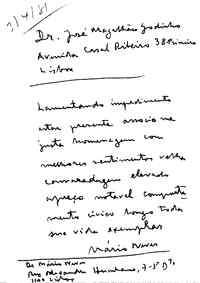 3/4/81
Dr. José Magalhães Godinho
Avenida Casal Ribeiro 38-Primeiro
Lisboa
Lamentando impedimento
estar presente associo-me
justa homenagem com
melhores sentimentos velha
camaradagem elevado
apreço notavel comporta
mento cívico longo toda
sua vida exemplar
Mário Neves
Dr. Mário Neves
Rua Alexandre Herculano, 7-3º Dtº
1100 Lisboa